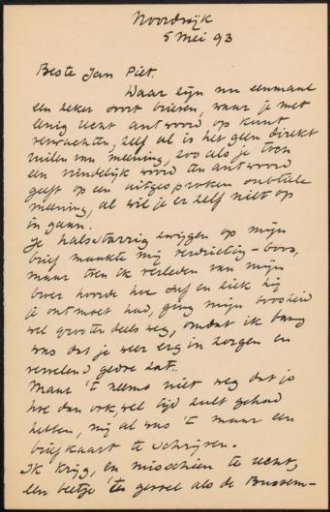 Noordwijk
5 Mei 93
Beste Jan Piet.
Waar zijn nu eenmaal
een zeker soort brieven, waar je met
eenig recht antwoord op kunt
verwachten, zelf al is het geen direkt
ruilen van meening, zoo als je toch
een vriendelijk woord ten antwoord
geeft op een uitgesproken
meening, al wil je er zelf niet op
in gaan.
Je halsstarrig zwijgen op mijn
brief maakte mij verdrietig - boos,
maar toen ik verleden van mijn
broer hoorde hoe en ziek hij
je ontmoet had, ging mijn boosheid
wel grootendeels weg, omdat ik bang
was dat je weer erg in zorgen en
vervelend gedoe zat.
Maar 't neemt niet weg dat je
hoe dan ook wel tijd zult gehad
hebben, mij al was 't maar een
briefkaart te schrijven.
Ik krijg, en misschien te recht,
een beetje 't gevoel als de Bussem-